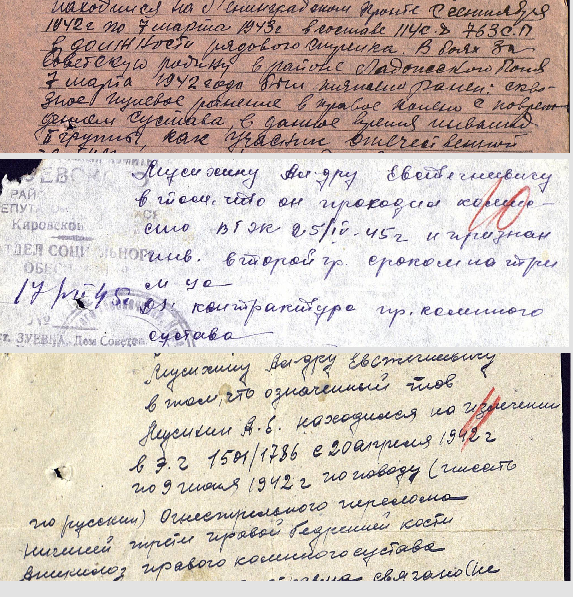 находился на Ленинградском фронте с сентября
1942 г по 7 марта 1943 г в составе 114 СД 763 СП
в должности рядового стрелка. В боях за
Советскую родину в районе Ладожского
7 марта 1942 года был ранен: скво-
зное пулевое ранение в правое колено с повреж-
дением сустава в данное время инвалид
II группы как участник отечественной
РАЙ
ДЕПУТ
Кировской
ОТДЕЛ СОЦИАЛЬНОГО
ОБЕСП
17/VII 45
ст. ЗУЕВКА, Дом Советов
Мусихину Ал-дру Евстегневичу
в том, что он проходил комис-
сию ВТЭК 25/IV-45 г и признан
инв. второй гр. сроком на три
м-ца
Дз. контрактура пр. коленного
сустава
10
Мусихину Ал-дру
в том что означенный тов
Мусихин А.Е. находился на излечении
в Э.Г 1501/1786 с 20 апреля 1942 г
по 9 июля 1942 г по поводу (писать
по русски) Огнестрельного перелома
нижней трети правой бедренной кости
Анкилоз правого коленного сустава
связано (не
11